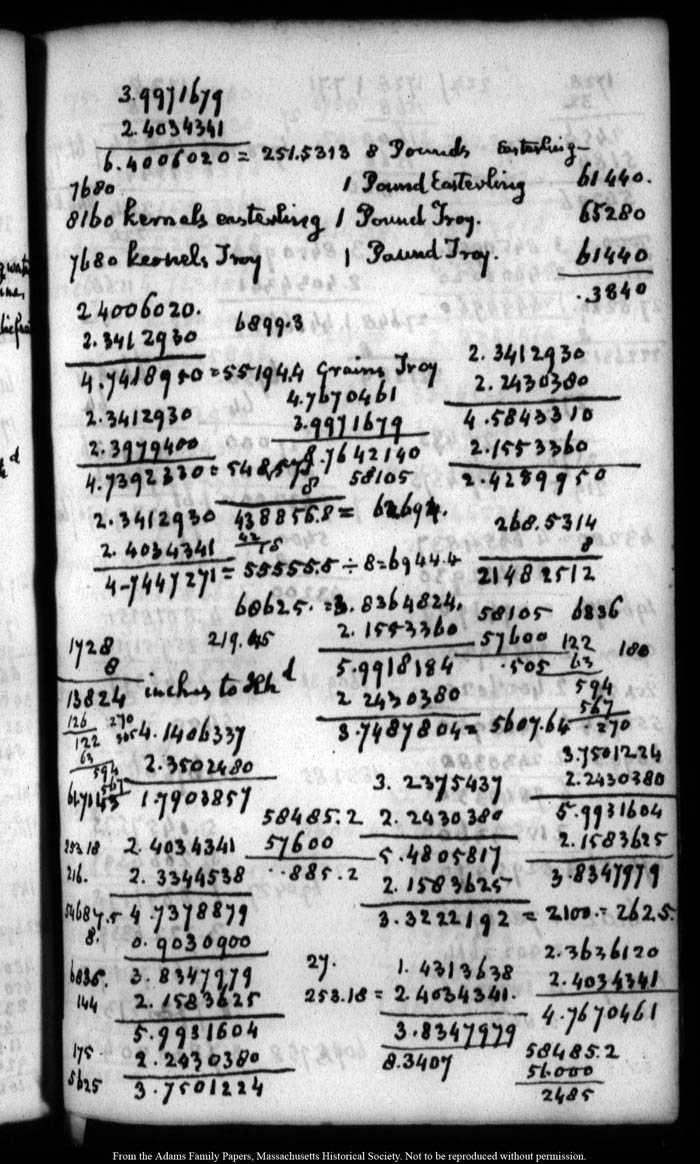 3.9971679
2.4034341
6.4006020 = 251.5313 8 Pounds Easterling
7680 1 Pound Easterling 61440.
8160 kernels easterling 1 Pound Troy. 65280
7680 kernels Troy 1 Pound Troy. 61440
.3840
24006020. 6899.3
2.3412930
4.7418950 = 55194.4 Grains Troy
2.3412930
2.2430380
4.5843310
2.1553360
2.4289950
4.7670461
3.9971679
8.7642140
58105
2.3412930
2.3979400
4.7392330 = 548,57.1
8
438856.8 = 62694.
2.3412930
2.4034341
4.7447271 = 55555.5 ÷ 8 = 6944.4
268.5314
8
21482512
60625. = 3.8364824.
2.1553360
5.9918184
2 2430380
3.7487804 = 5607.64
219.45
58105 6836
57600
.505
122
63
594
567
270
180
1728
8
13824 inches to
126 270
122 305
63
594
567
4.1406337
2.3502480
1.7903857
3.7501224
2.2430380
5.9931604
2.1583625
3.8347979
3.2375437
2.2430380
5.4805817
2.1583625
3.3222192 = 2100. = 262.5.
58485.2
57600
..885.2
253.18 2.4034341
216. 2.3344538
54687.5 4.7378879
8. 0.9030900
6836. 3.8347979
144 2.1583625
5.9931604
175 2.2430380
5625 3.7501224
27. 1.4313638
253.18 = 2.4034341.
3.8347979
8.3407
2.3636120
2.4034341
4.7670461
58485.2
56.000
2485
From the Adams Family Papers, Massachusetts Historical Society. Not to be reproduced without permission.